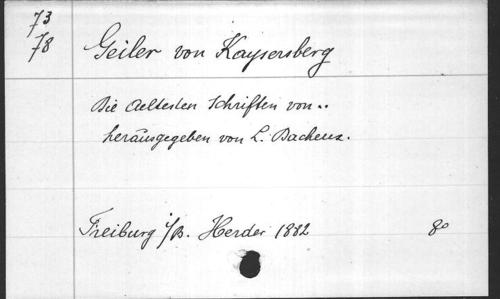 73
78
Geiler von Kaysersberg
Die aeltesten Schriften von ..
heraüsgegeben von L. Dacheux.
Freiburg i/B. Herder 1882 8º